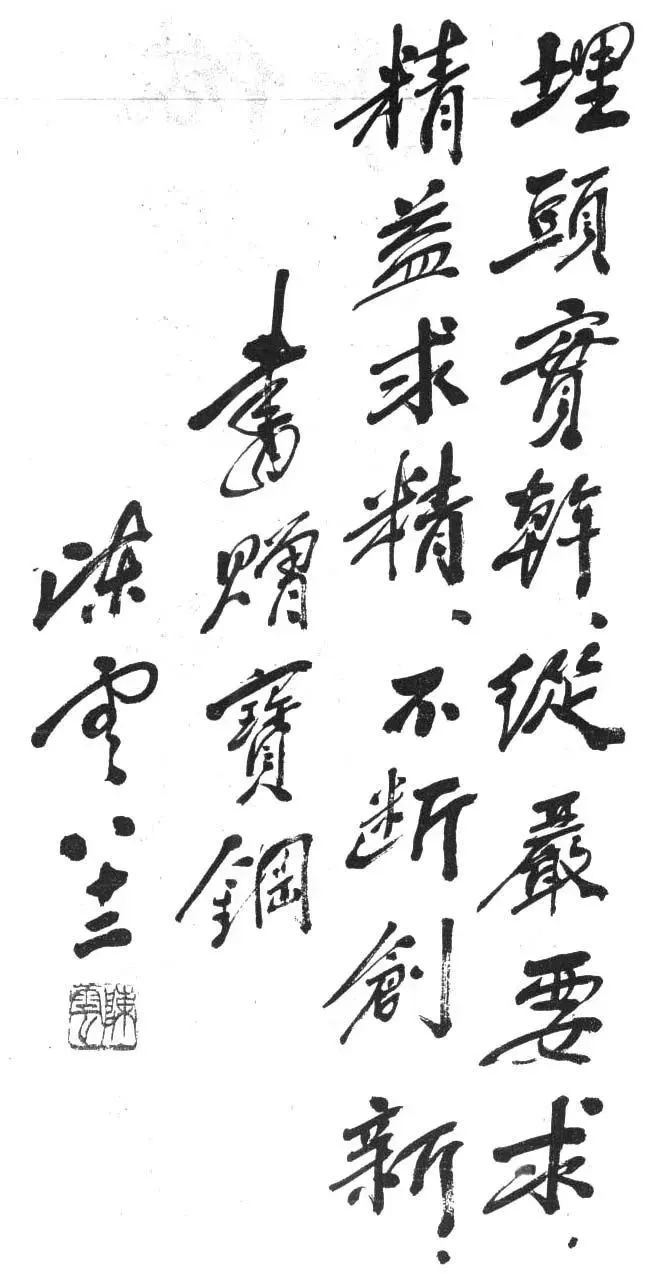 埋頭實幹、從嚴要求.
精益求精、不断創新.
書贈寶鋼
陳雲八十二
陳雲